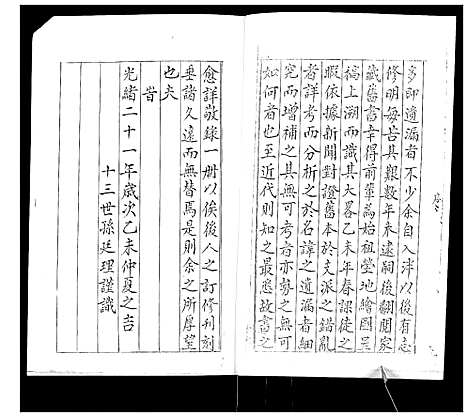 多即遺漏者不少余自入泮以後有志
修明每苦其艱數年來遠祠後翻閱家
藏舊書幸得前輩為始祖塋地繪圖呈
稿上溯而識其大畧乙未年春課徒之
暇依據新聞對證舊本於支派之錯亂
者詳考而分析之於名諱之遺漏者細
究而增補之其無可考者亦勢之無可
如何者也至近代則知之最悉故書之
愈詳敬錄一冊以俟後人之訂修刊刻
垂諸久遠而無替焉是則余之所厚望
也夫
旹
光緒二十一年歲次乙未仲夏之吉
十三世孫廷理謹識